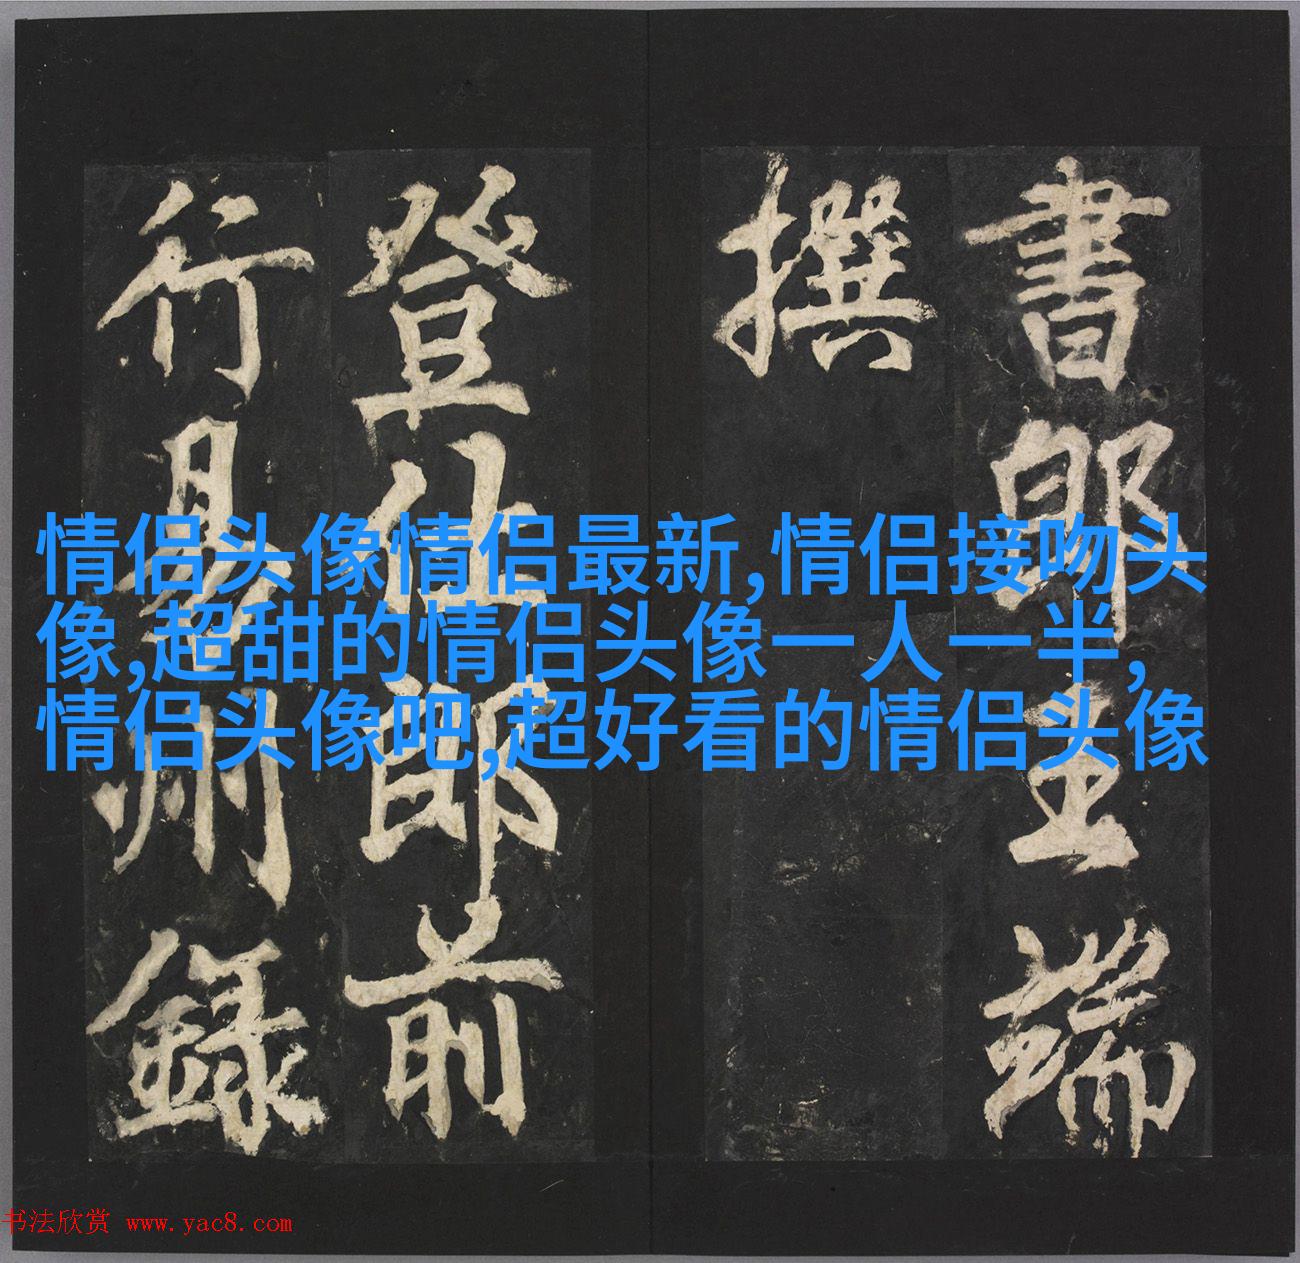 書郎王端
撰
登仕郎前
行易州録
情侣头像情侣最新,情侣接吻头
像,超甜的情侣头像一人一半,
情侣头像吧,超好看的情侣头像
书法欣赏 www.yac8.com